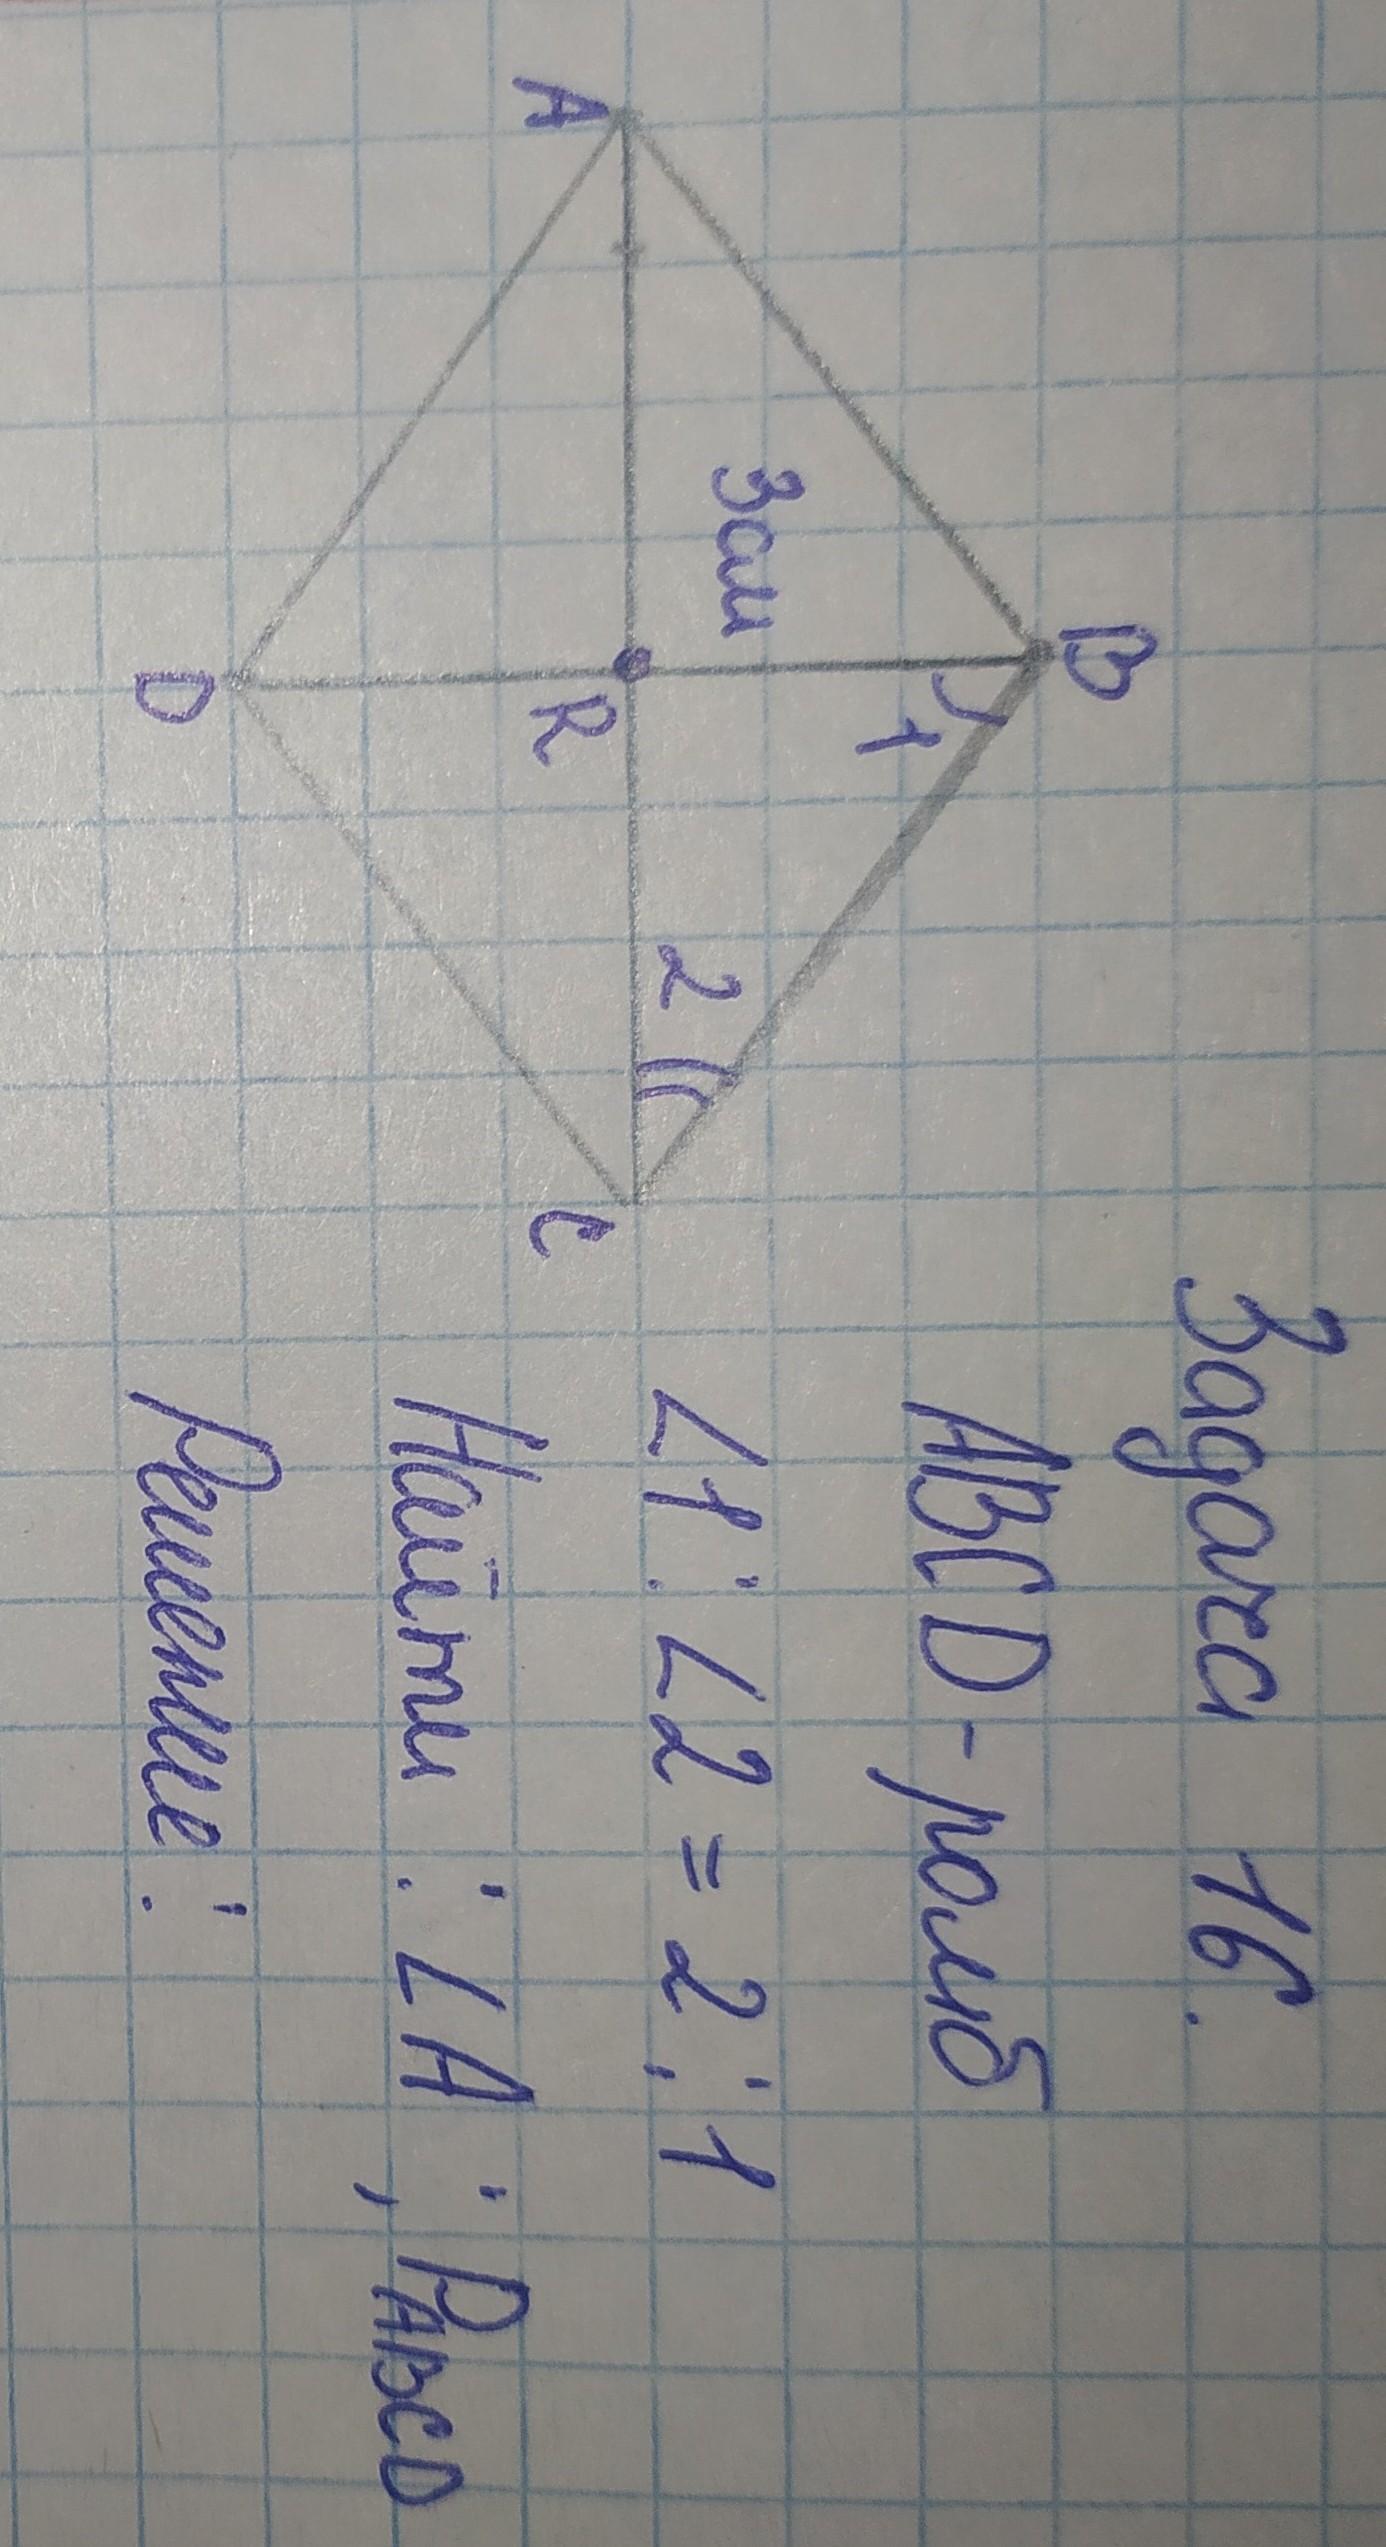 B
3 см
1
A
R
2
C
D
Задача 16.
ABCD - ромб
∠1 : ∠2 = 2 : 1
Найти : ∠A ; PABCD
Решение :